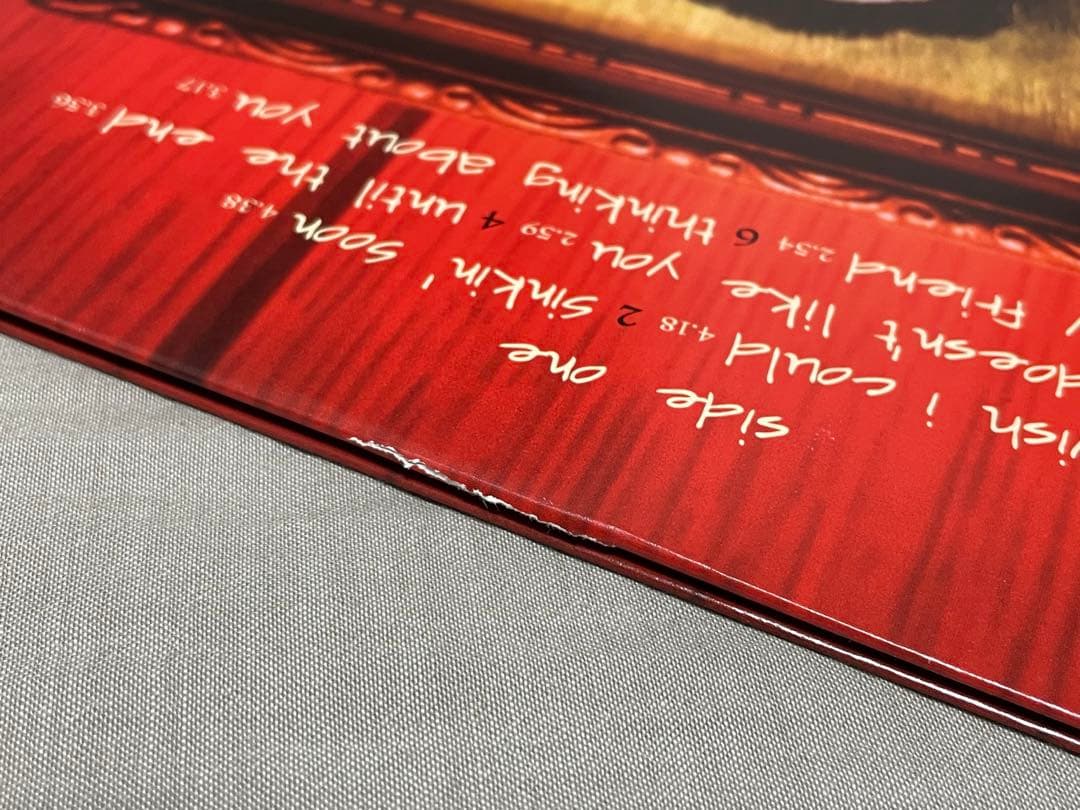 side one
ish i could 4.18 2 sinkin' soon 4.38
doesn't like you 2.59 4 until the end 3.56
y friend 2.54 6 thinking about you 3.17